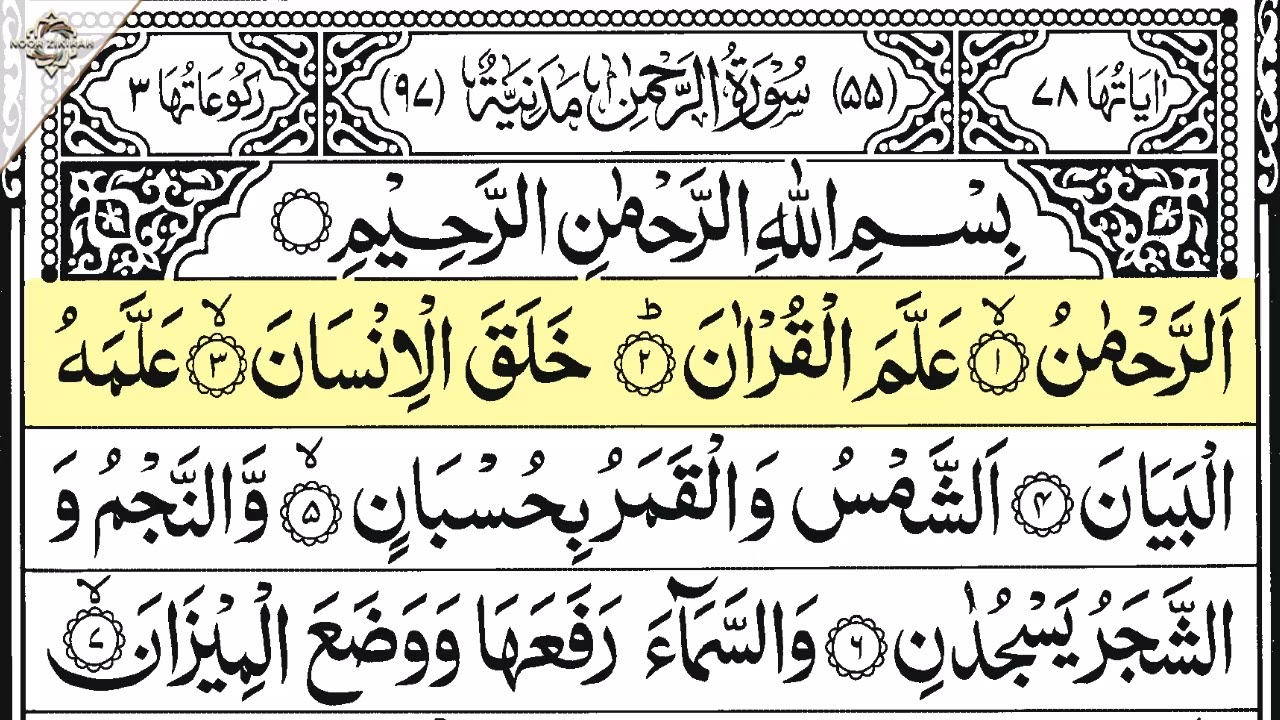 NOOR ZIKIRAH
اٰيَاتُهَا ٧٨ (٥٥) سُوْرَةُ الرَّحْمٰنِ مَدَنِيَّةٌ (٩٧) رُكُوْعَاتُهَا ٣
بِسْمِ اللّٰهِ الرَّحْمٰنِ الرَّحِيْمِ
اَلرَّحْمٰنُ ۙ﴿١﴾ عَلَّمَ الْقُرْاٰنَ ؕ﴿٢﴾ خَلَقَ الْاِنْسَانَ ۙ﴿٣﴾ عَلَّمَهُ
الْبَيَانَ ﴿٤﴾ اَلشَّمْسُ وَالْقَمَرُ بِحُسْبَانٍ ۙ﴿٥﴾ وَّالنَّجْمُ وَ
الشَّجَرُ يَسْجُدٰنِ ﴿٦﴾ وَالسَّمَآءَ رَفَعَهَا وَوَضَعَ الْمِيْزَانَ ۙ﴿٧﴾